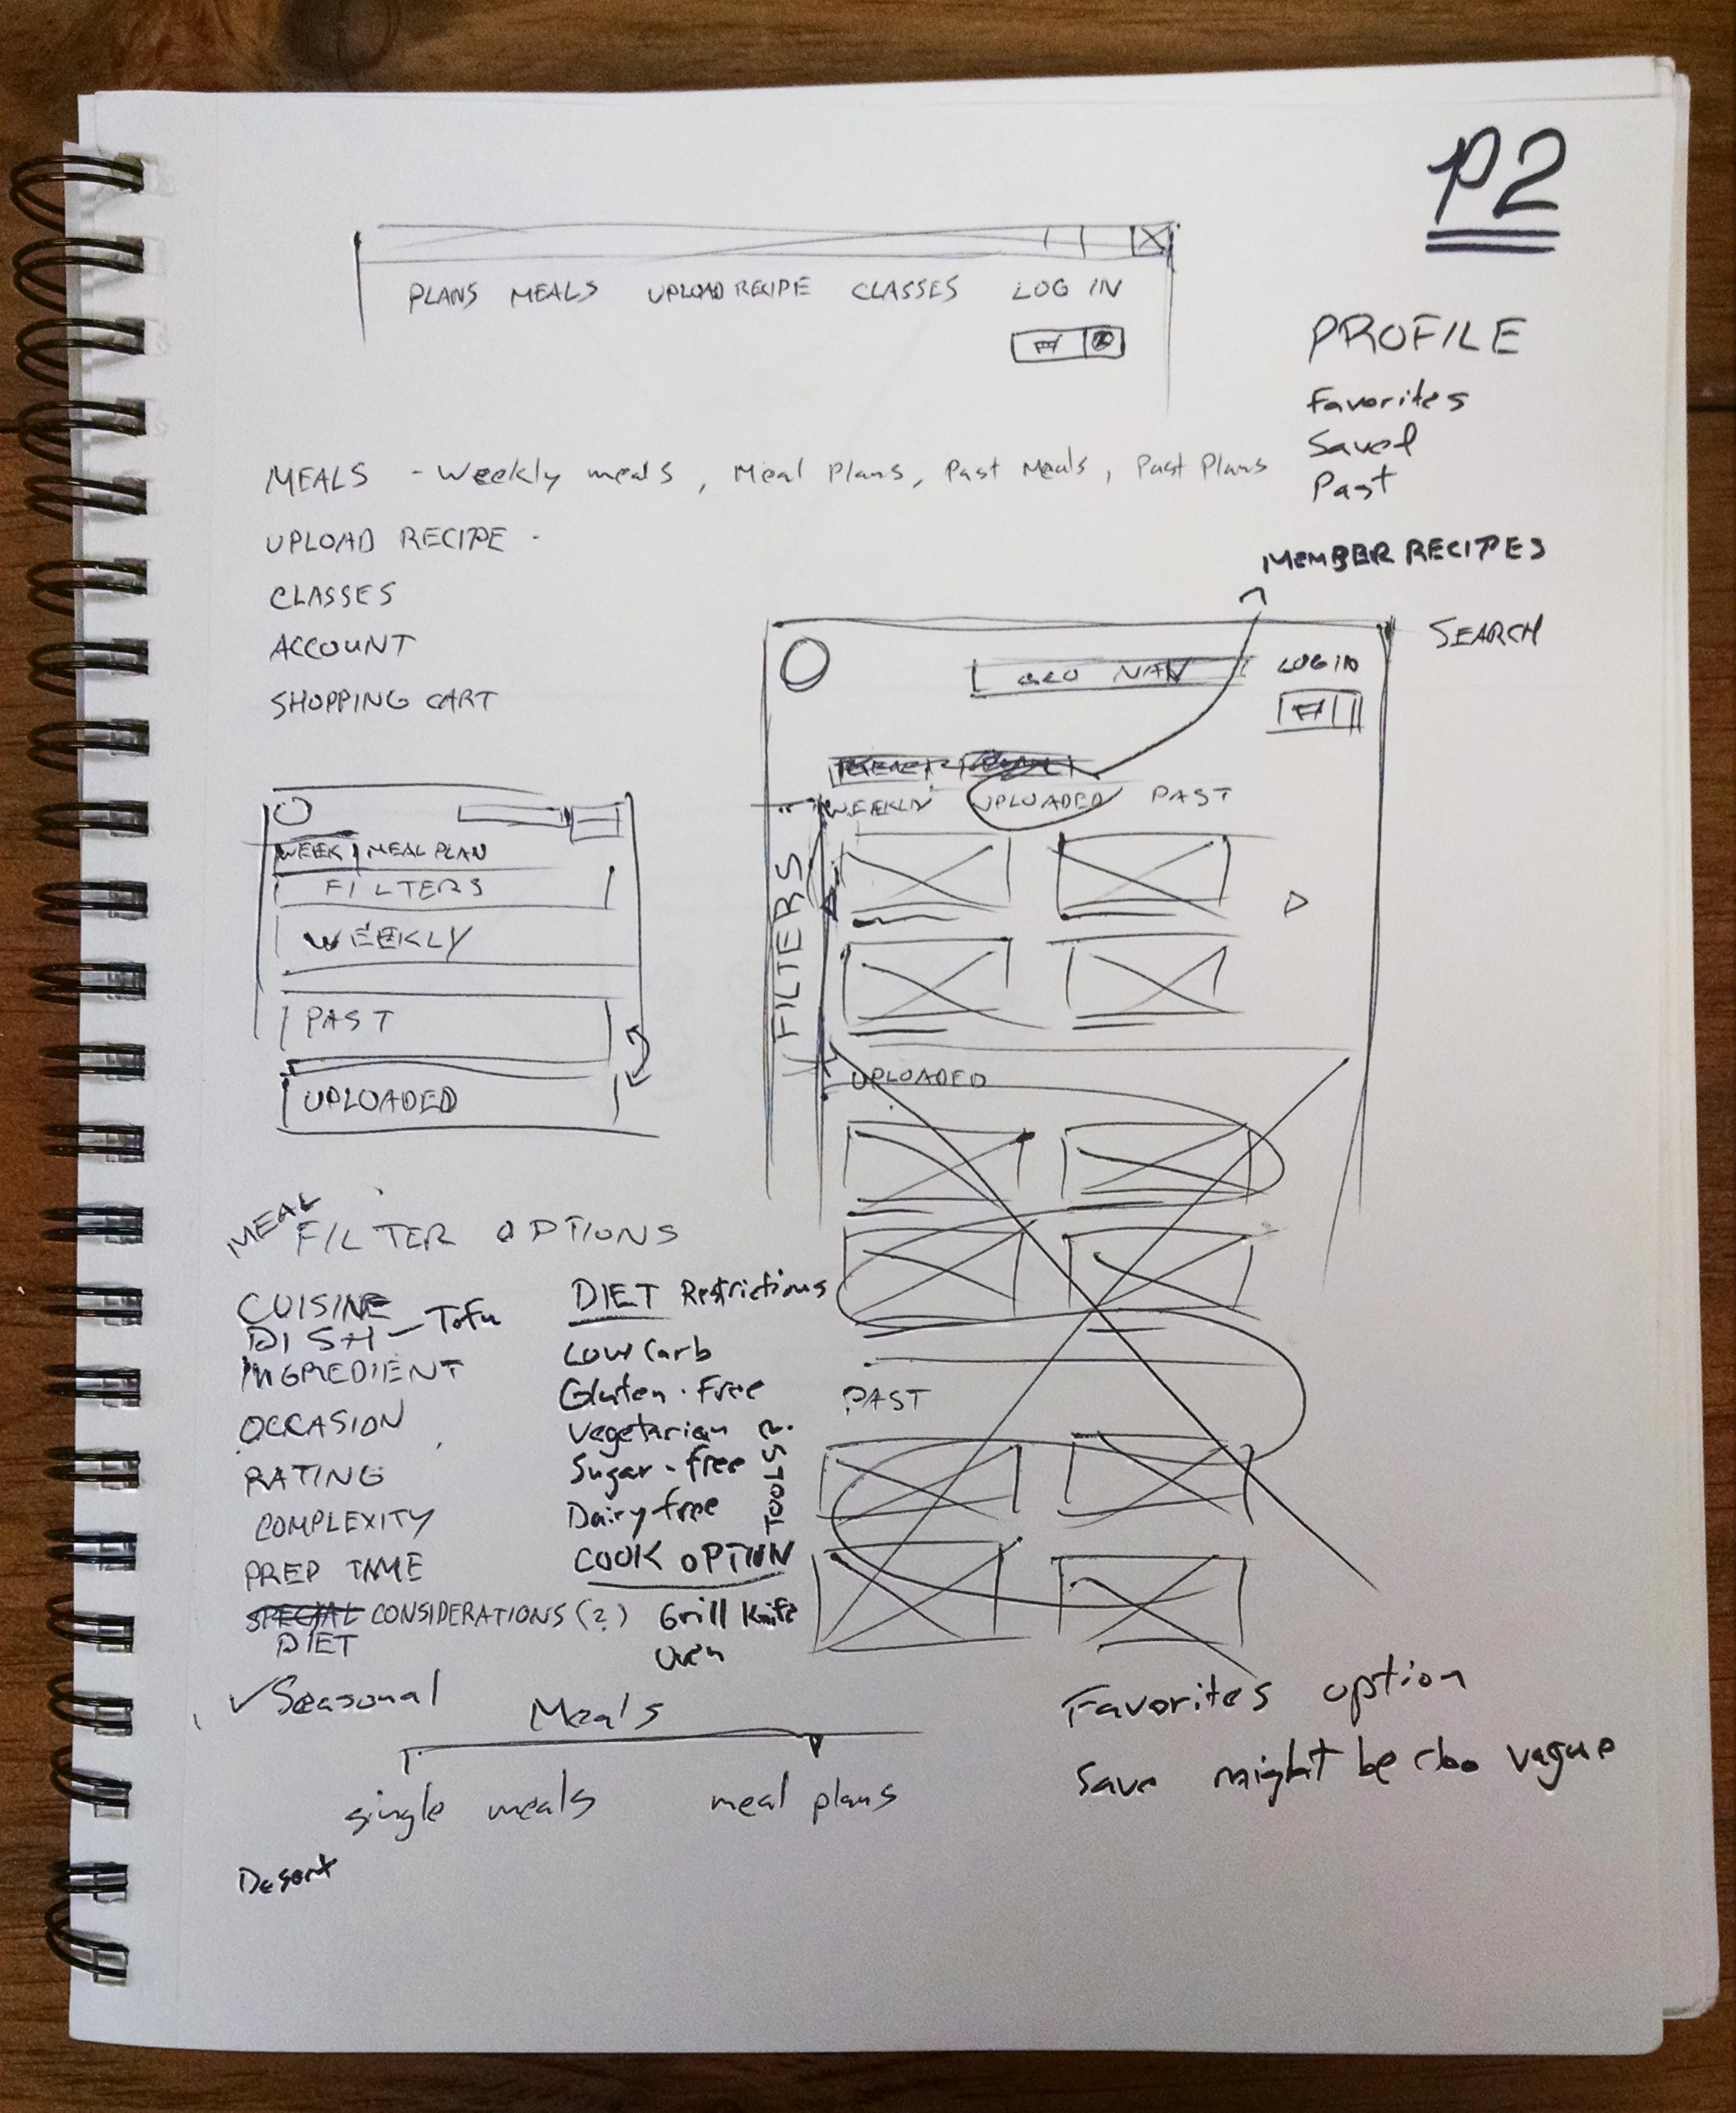 P2
PLANS MEALS UPLOAD RECIPE CLASSES LOG IN
PROFILE
Favorites
Saved
Past
MEALS - Weekly meals, Meal Plans, Past Meals, Past Plans
UPLOAD RECIPE -
CLASSES
ACCOUNT
SHOPPING CART
MEMBER RECIPES
SEARCH
NAV
LOG IN
WEEKLY UPLOADED PAST
FILTERS
UPLOADED
PAST
WEEK MEAL PLAN
FILTERS
WEEKLY
PAST
UPLOADED
MEAL
FILTER OPTIONS
CUISINE
DISH - Tofu
INGREDIENT
OCCASION
RATING
COMPLEXITY
PREP TIME
SPECIAL CONSIDERATIONS (?)
DIET
✓ Seasonal
DIET Restrictions
Low Carb
Gluten-Free
Vegetarian
Sugar-free
Dairy free
TOOLS?
COOK OPTION
Grill Knife
Oven
Meals
single meals meal plans
Desert
Favorites option
Save might be too vague